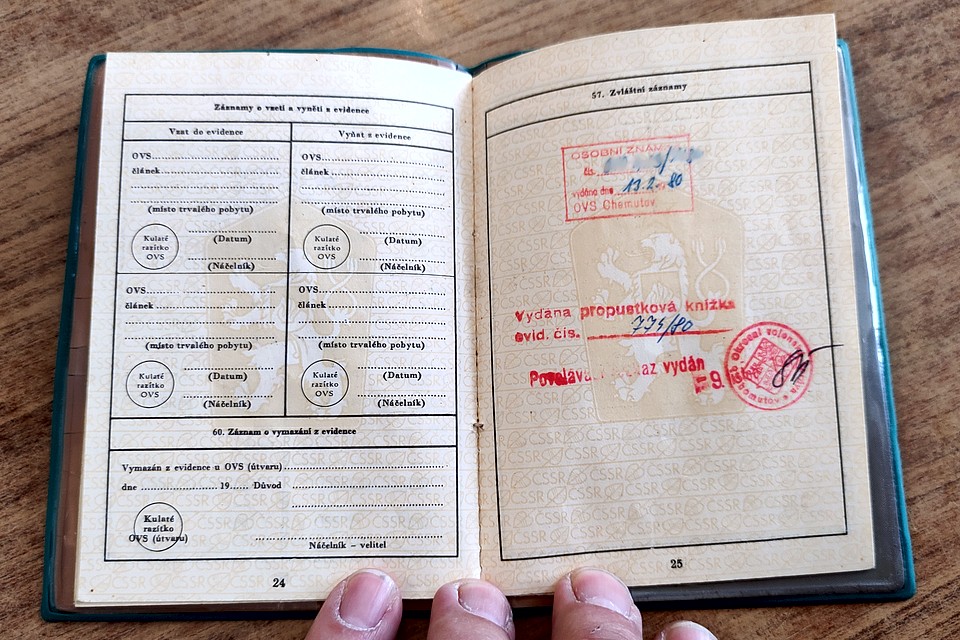 Záznamy o vzetí a vynětí z evidence
Vzat do evidence
Vyňat z evidence
OVS
článek
(místo trvalého pobytu)
Kulaté
razítko
OVS
(Datum)
(Náčelník)
OVS
článek
(místo trvalého pobytu)
Kulaté
razítko
OVS
(Datum)
(Náčelník)
OVS
článek
(místo trvalého pobytu)
Kulaté
razítko
OVS
(Datum)
(Náčelník)
OVS
článek
(místo trvalého pobytu)
Kulaté
razítko
OVS
(Datum)
(Náčelník)
60. Záznam o vymazání z evidence
Vymazán z evidence u OVS (útvaru)
dne 19 Důvod
Kulaté
razítko
OVS (útvaru)
Náčelník – velitel
24
57. Zvláštní záznamy
OSOBNÍ
čís.
vydána dne 13.2. 80
OVS Chomutov
Vydána propustková knížka
evid. čís. 774/80
vydán
9.
25
ČSSR